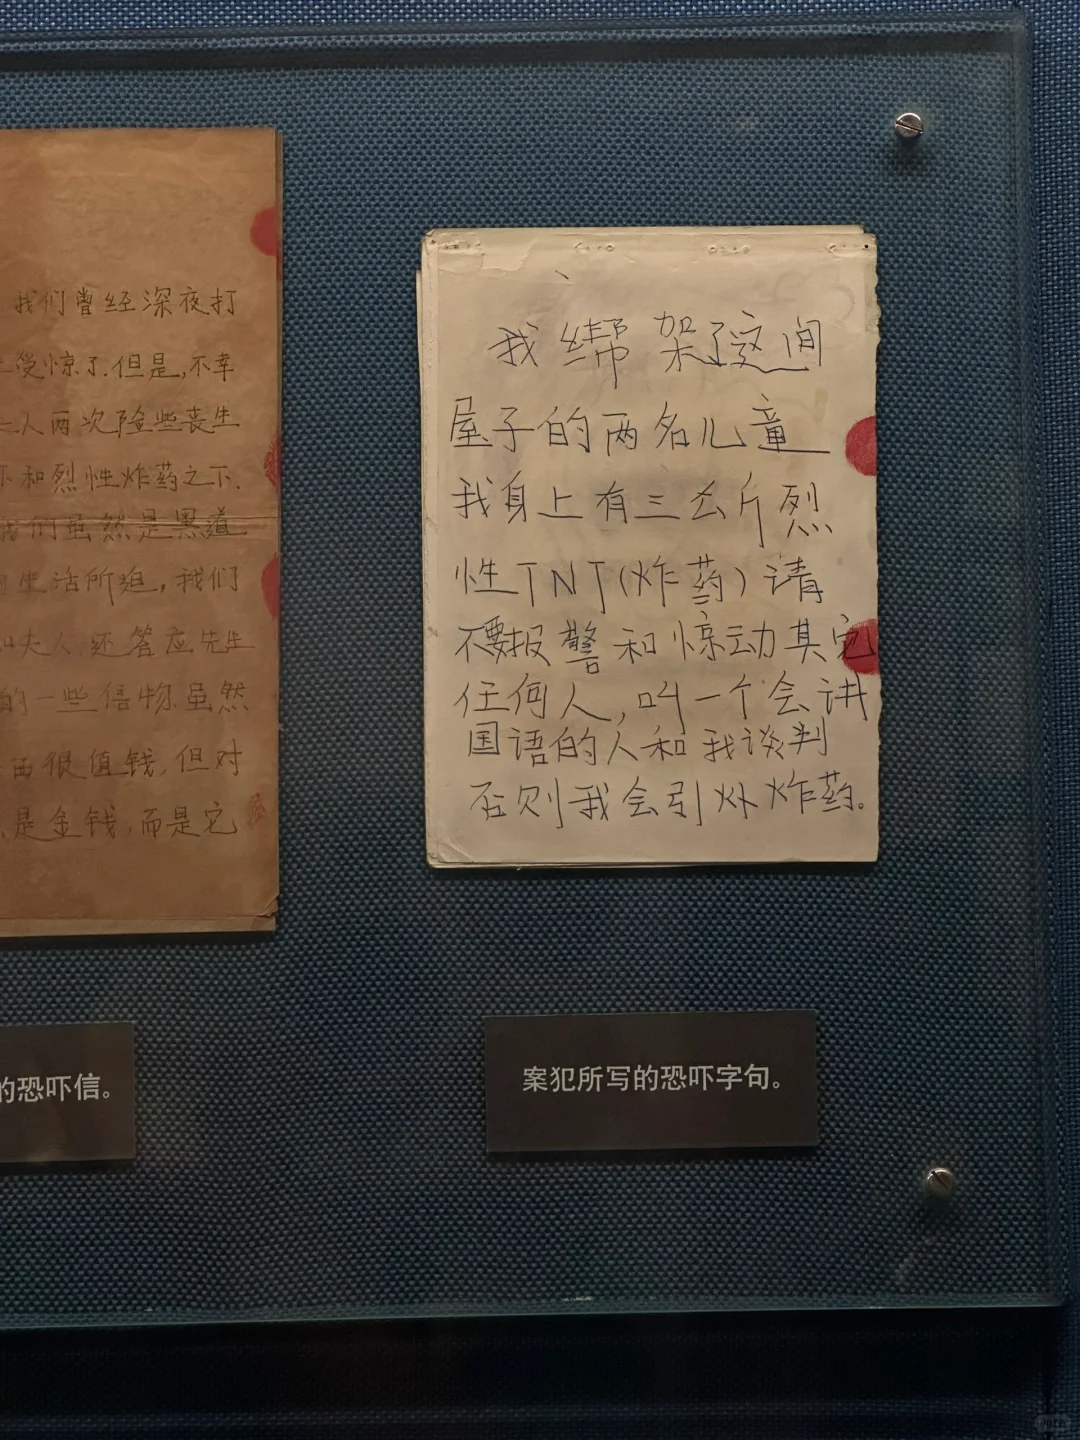 我们曾经深夜打
受惊了.但是,不幸
人两次险些丧生
和烈性炸药之下.
我们虽然是黑道
生活所迫,我们
夫人,还答应先生
的一些信物.虽然
西很值钱,但对
是金钱,而是它
的恐吓信。
我绑架了这间
屋子的两名儿童
我身上有三公斤烈
性TNT(炸药)请
不要报警和惊动其它
任何人,叫一个会讲
国语的人和我谈判
否则我会引炸药。
案犯所写的恐吓字句。